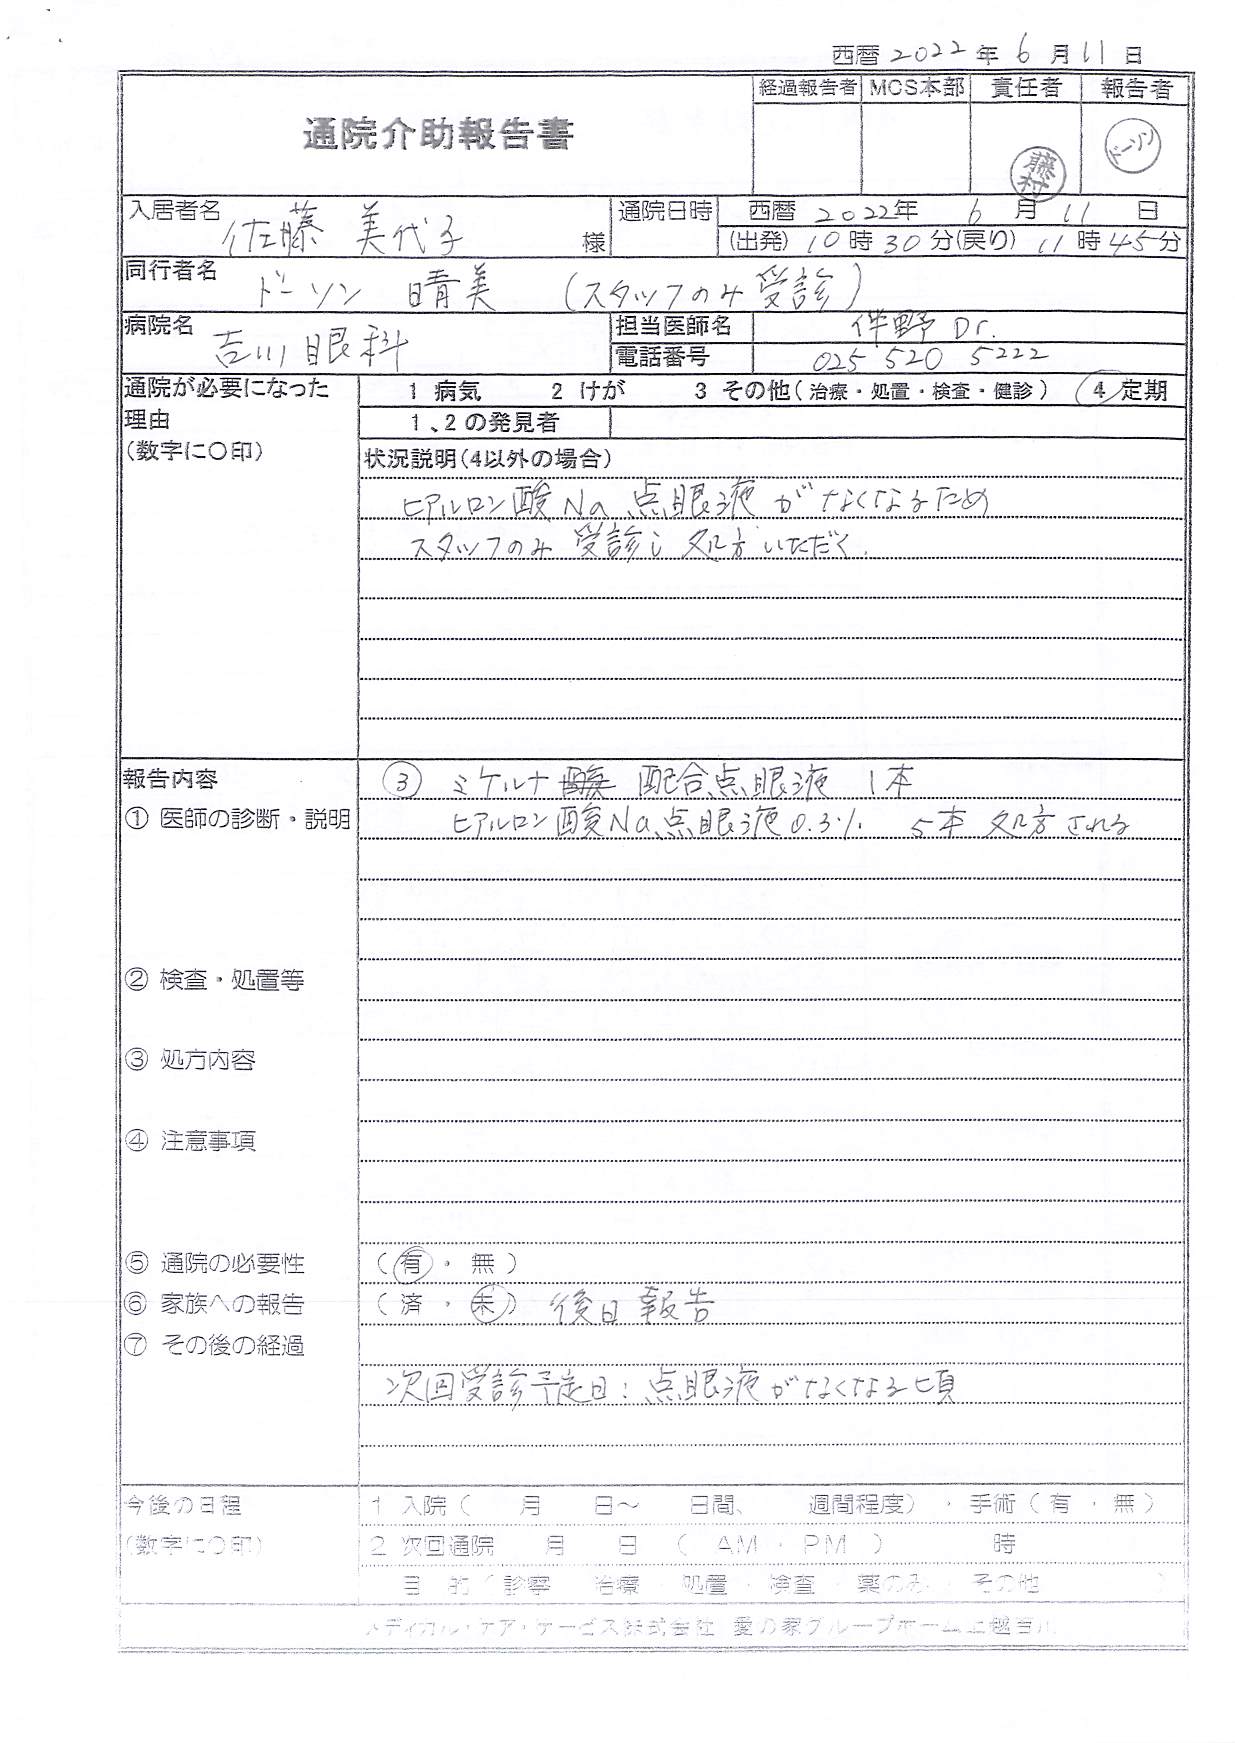 西暦 2022 年 6 月 11 日
通院介助報告書
経過報告者 MCS本部 責任者 報告者
藤村 ドーソン
入居者名 佐藤 美代子 様
通院日時 西暦 2022年 6 月 11 日
(出発) 10時30分(戻り) 11時45分
同行者名 ドーソン 晴美 (スタッフのみ受診)
病院名 吉川眼科
担当医師名 伴野 Dr.
電話番号 025 520 5222
通院が必要になった理由
(数字に〇印)
1 病気 2 けが 3 その他(治療・処置・検査・健診) 4 定期
1、2の発見者
状況説明(4以外の場合)
ヒアルロン酸Na点眼液がなくなるため
スタッフのみ受診し処方いただく。
報告内容
③ ミケルナ 配合点眼液 1本
① 医師の診断・説明
ヒアルロン酸Na点眼液0.3% 5本 処方される
② 検査・処置等
③ 処方内容
④ 注意事項
⑤ 通院の必要性 (有・無)
⑥ 家族への報告 (済・未) 後日報告
⑦ その後の経過
次回受診予定日:点眼液がなくなる頃
今後の日程
(数字に〇印)
1 入院( 月 日〜 日間、 週間程度)・手術(有・無)
2 次回通院 月 日 ( AM・PM ) 時
目 的(診察・治療・処置・検査・薬のみ・その他 )
メディカル・ケア・サービス株式会社 愛の家グループホーム上越吉川